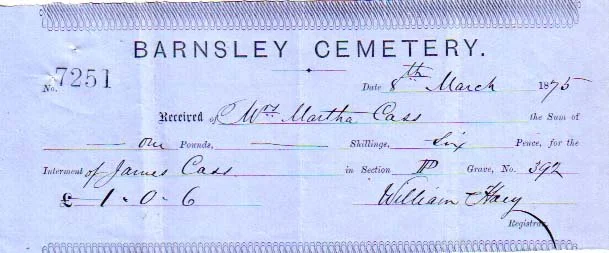 BARNSLEY CEMETERY.
No. 7251 Date 8th March 1875
Received of Mrs Martha Cass the Sum of
One Pounds, Shillings, Six Pence, for the
Interment of James Cass in Section D Grave, No. 392
£ 1.0.6 William
Registrar